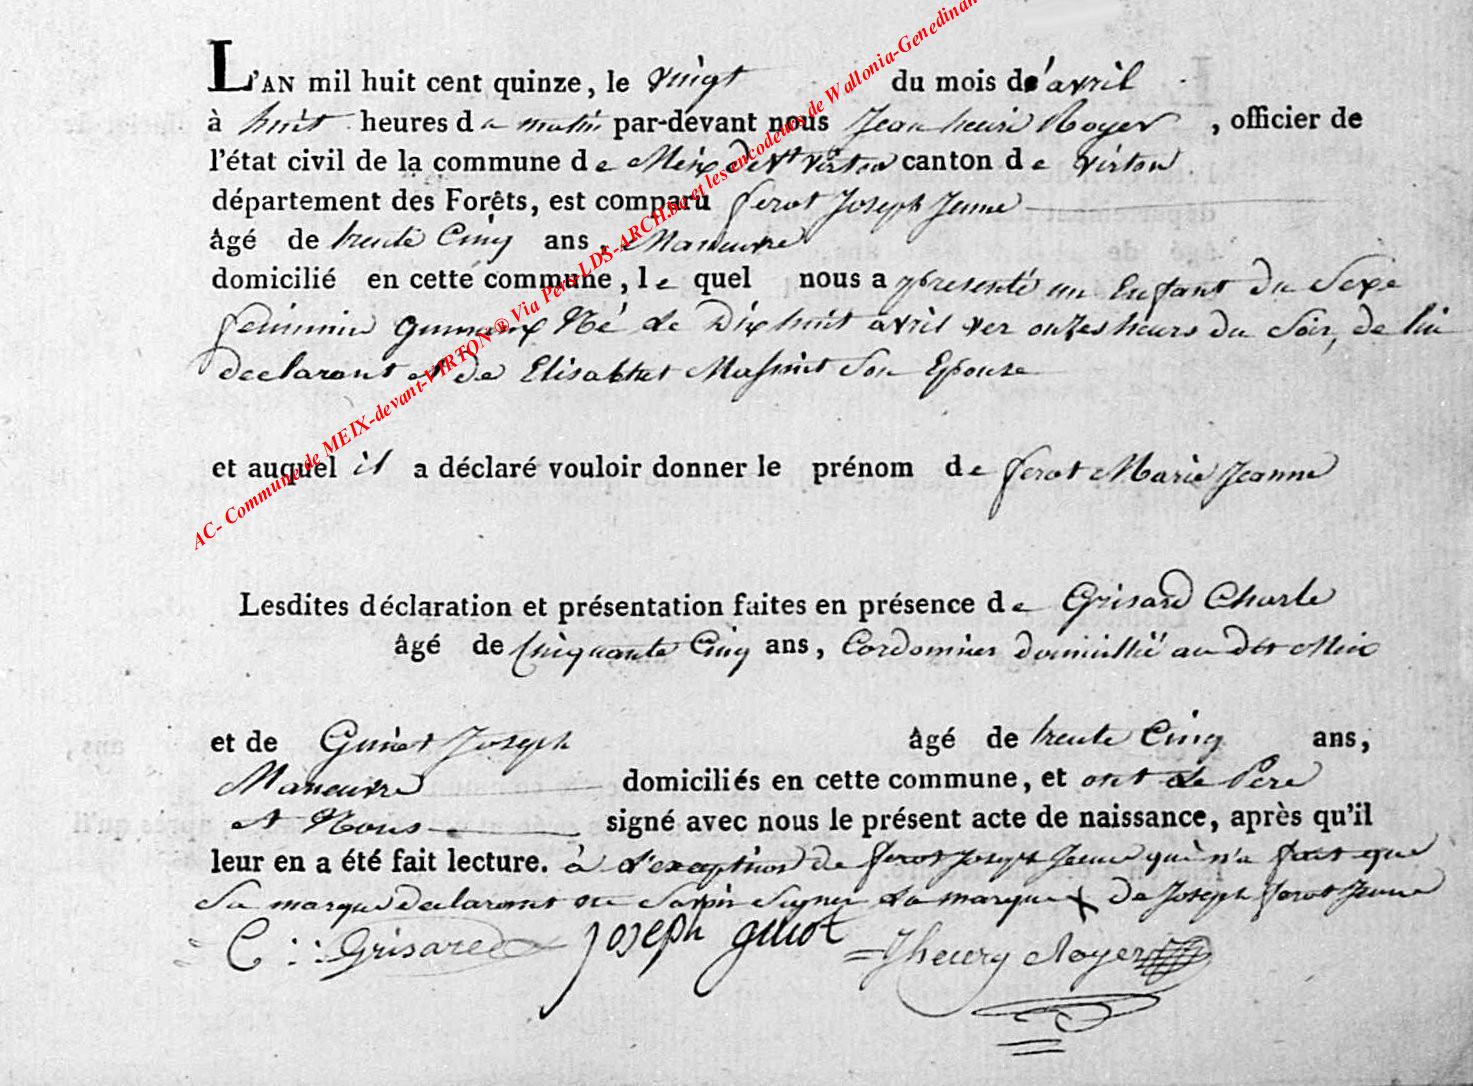 L'AN mil huit cent quinze, le vingt du mois d'avril
à huit heures du matin par-devant nous Jean henri Royer, officier de
l'état civil de la commune de Meix devt virton canton de virton
département des Forêts, est comparu ferot Joseph Jeune
âgé de trente Cinq ans, Maneuvre
domicilié en cette commune, le quel nous a presenté un Enfant du Sexe
feminin gumeux Né le Dix huit avril ver onzes heurs du Soir, de lui
declarant et de Elisabhet Massinet Son Epouse
et auquel il a déclaré vouloir donner le prénom de ferot Marie Jeanne
Lesdites déclaration et présentation faites en présence de Grisard Charle
âgé de Cinquante Cinq ans, Cordonnier domicillié au dit Meix
et de Guiot Joseph âgé de trente Cinq ans,
Maneuvre domiciliés en cette commune, et ont le Pere
et Nous signé avec nous le présent acte de naissance, après qu'il
leur en a été fait lecture. à l'exception de ferot Joseph Jeune qui n'a fait que
Sa marque declarant ne Savoir Signer la marque X de Joseph ferot Jeune
C : : Grisard Joseph guiot Jhenry Royer
AC- Commune de MEIX-devant-VIRTON® Via Pers-LDS-ARCH.be et les encodeurs de Wallonia-Genedinan